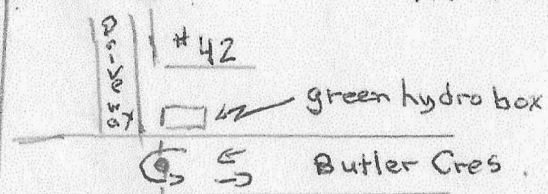 Driveway
#42
green hydro box
Butler Cres.